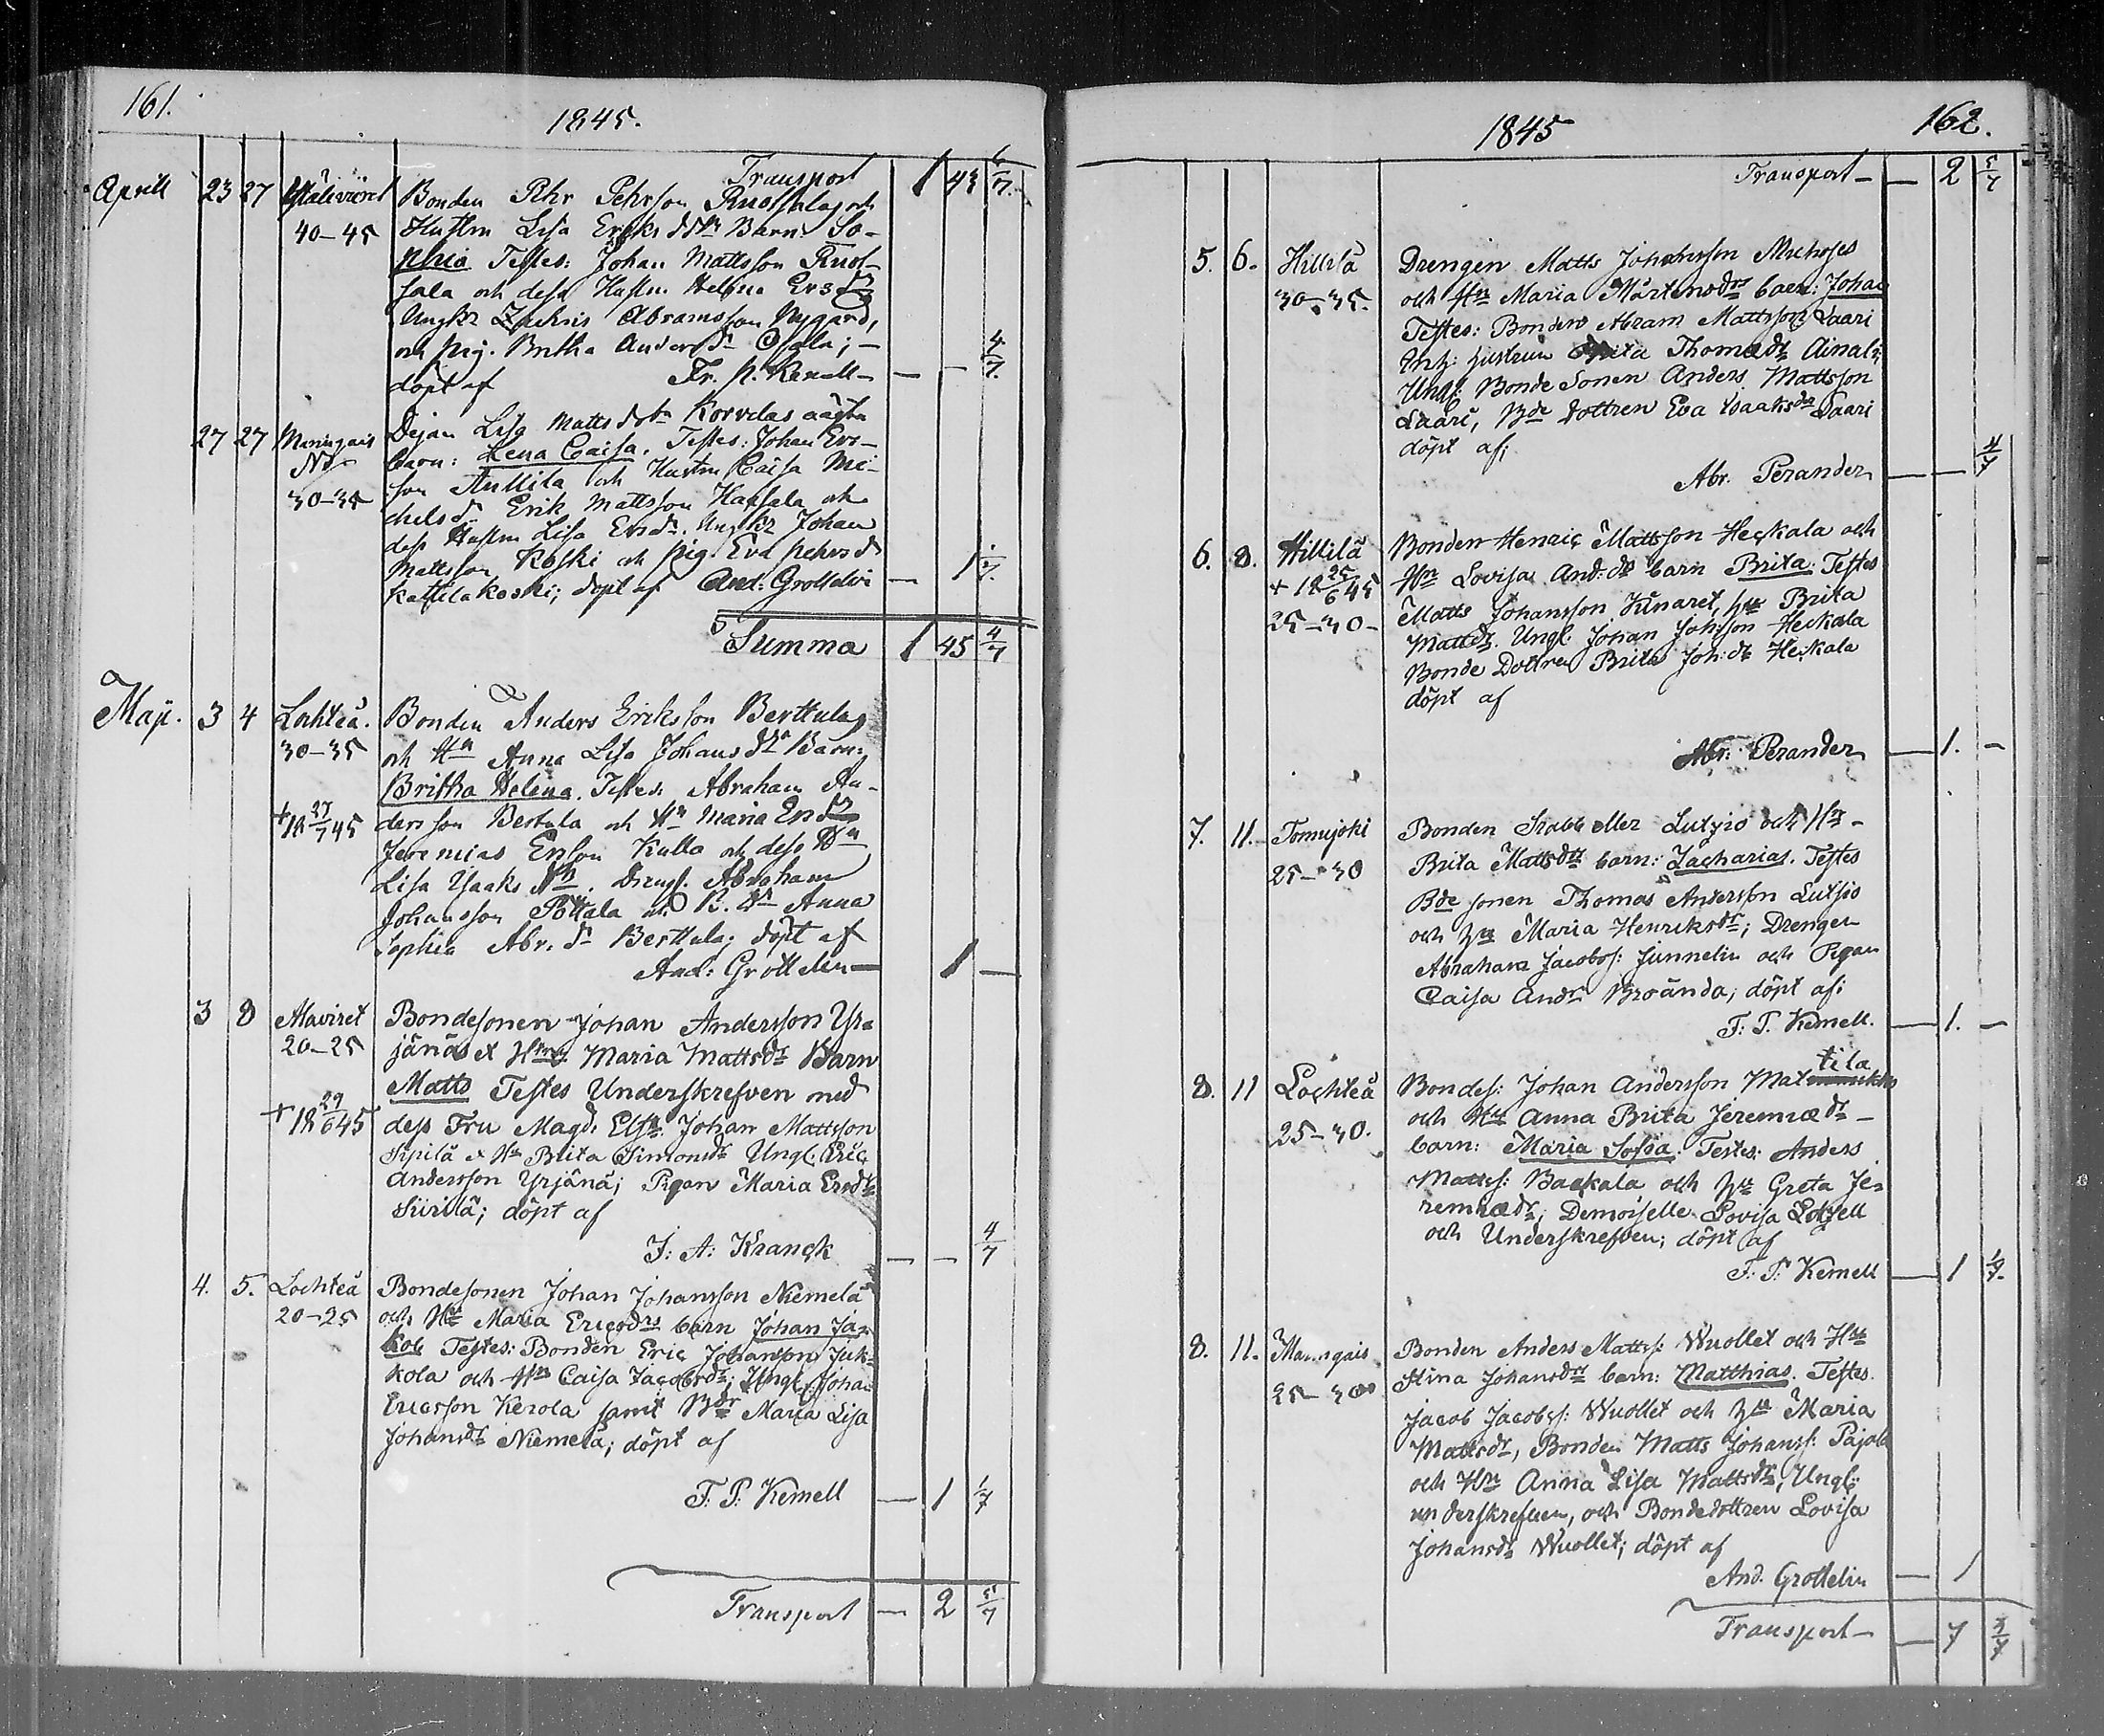 161.
1845.
Transport 1 43 6/7.
Aprill 23 27 Bonden Pehr Pehrson och
40-45 Hustrun Lisa Eriks dotr Barn: So-
phia Testes: Johan Mattsson Ruot-
sala och dess Hustru Helena Ersdr
Ungkr Zachris Abramsson Nygård,
och pig. Britha Anders dr Osala; —
döpt af Fr. P. Kemell — — 4/7.
27 27 Maningais Dejan Lisa Matts dotr Korvelas oägta
No barn: Lena Caisa. Testes: Johan Ers-
30-35 son Anttila och Hustru Caisa Mi-
chelsdr Erik Mattsson Hansala och
dess Hustru Lisa Ersdr. Ungkr Johan
Mattsson Koski och pig. Eva Pehrsd
Kattilakoski; döpt af And: Grottelin — 1 1/7.
Summa 1 45 4/7
Maji. 3 4 Lochteå. Bonden Anders Eriksson Berttula
30-35 och Hn Anna Lisa Johans dtr Barn:
Britha Helena. Testes. Abraham An-
+ 18 27/7 45 dersson Bertula och Hn Maria Ersdr
Jeremias Ersson Kulla och dess Hn
Lisa Isaks dtr. Drengs. Abraham
Johansson Pottala och B. dr Anna
Sophia Abr. dr Berttula; döpt af
And: Grottelin — 1 —
3 8 Alaviret Bondesonen Johan Andersson Yr-
20-25 jänäs & Hstru Maria Mattsdr Barn
Matts Testes Underskrefven med
+ 18 29/6 45 dess Fru Magd. Elis. Johan Mattsson
Sipilä & Hn Brita Simonsdr Ungl: Eric
Andersson Yrjänä; Pigan Maria Ersdr
Siirilä; döpt af
J: A: Kranck — — 4/7
4. 5. Lochteå Bondesonen Johan Johansson Niemelä
20-25 och Hu Maria Ericsdrs barn Johan Ja-
kob Testes: Bonden Eric Johansson Juk-
kola och Hn Caisa Jacobsdr; Ungl: Johan
Ericsson Kerola samt Bdr Maria Lisa
Johansdr Niemelä; döpt af
F: P: Kemell — 1 1/7
Transport — 2 5/7
1845
162.
Transport — — 2 5/7
5. 6. Hillilä Drengen Matts Johansson
30-35. och Hu Maria Mårtensdrs barn: Johan
Testes: Bonden Abram Mattsson Saari
Enk: hustrun Brita Thomædr Ainali;
Ungl: Bonde Sonen Anders Mattsson
Saari, Bde dottren Eva Isaksdr Saari
döpt af;
Abr. Perander — — 4/7
6. 8. Hillilä Bonden Henric Mattsson Heckala och
+ 18 25/6 45 Hn Lovisa And: dr barn Brita. Testes
25-30- Matts Johansson Kinaret, hu Brita
Mattsdr. Ungl: Johan Johsson Heckala
Bonde Dottren Brita Joh: dr Heckala
döpt af
Abr: Perander — 1. —
7. 11. Tomujoki Bonden Stabb eller Lutzio och Hu-
25-30 Brita Mattsdrs barn: Zacharias. Testes
Bde sonen Thomas Andersson Lutsio
och hu Maria Henriksdr; Drengen
Abraham Jacobss: Junnelin och Pigan
Caisa Andr Broända; döpt af:
F: P. Kemell. — 1. —
8. 11 Lochteå Bondes: Johan Andersson Mattila
och Hu Anna Brita Jeremiædr —
25-30. barn: Maria Sofia. Testes: Anders
Mattss: Backala och hu Greta Je-
remiædr; Demoiselle Lovisa
och Underskrefven; döpt af
F: P: Kemell — 1 1/7.
8. 11. Maningais Bonden Anders Mattss: Wuollet och Hu
25-30 Stina Johansdrs barn: Matthias. Testes.
Jacob Jacobss: Wuollet och hu Maria
Mattsdr, Bonden Matts Johanss: Pajala
och Hu Anna Lisa Mattsdr; Ungl:
underskrefven, och Bondedottren Lovisa
Johansdr Wuollet; döpt af
And. Grottelin — 1
Transport — — 7 3/7